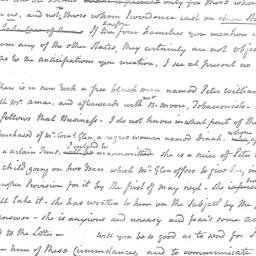 us, and not those whom Providence cast on
If the families you mention c
any of the other States, they certainly are not objec
as to the anticipations you mention, I see at present no
here is in new york a free black man named Peter William
with Mr. Amar, and afterwards with Mr. Moore, Tobacconists
follows that Business - I do not know in what part of the
purchased of Mr. Corns. Glen, a negro woman named Dinah, whom
a certain Time, I rely'd to manumitted she is a niece of Peter
child going on two Years, which Mr. Glen offers to give her, in
proper Provision for it by the first of May next - She
will take it - She has written to him on the Subject by the
answer - she is anxious and uneasy and fears some ac
to the Letter - will you be so good as to send for
him of these Circumstances, and to communicate